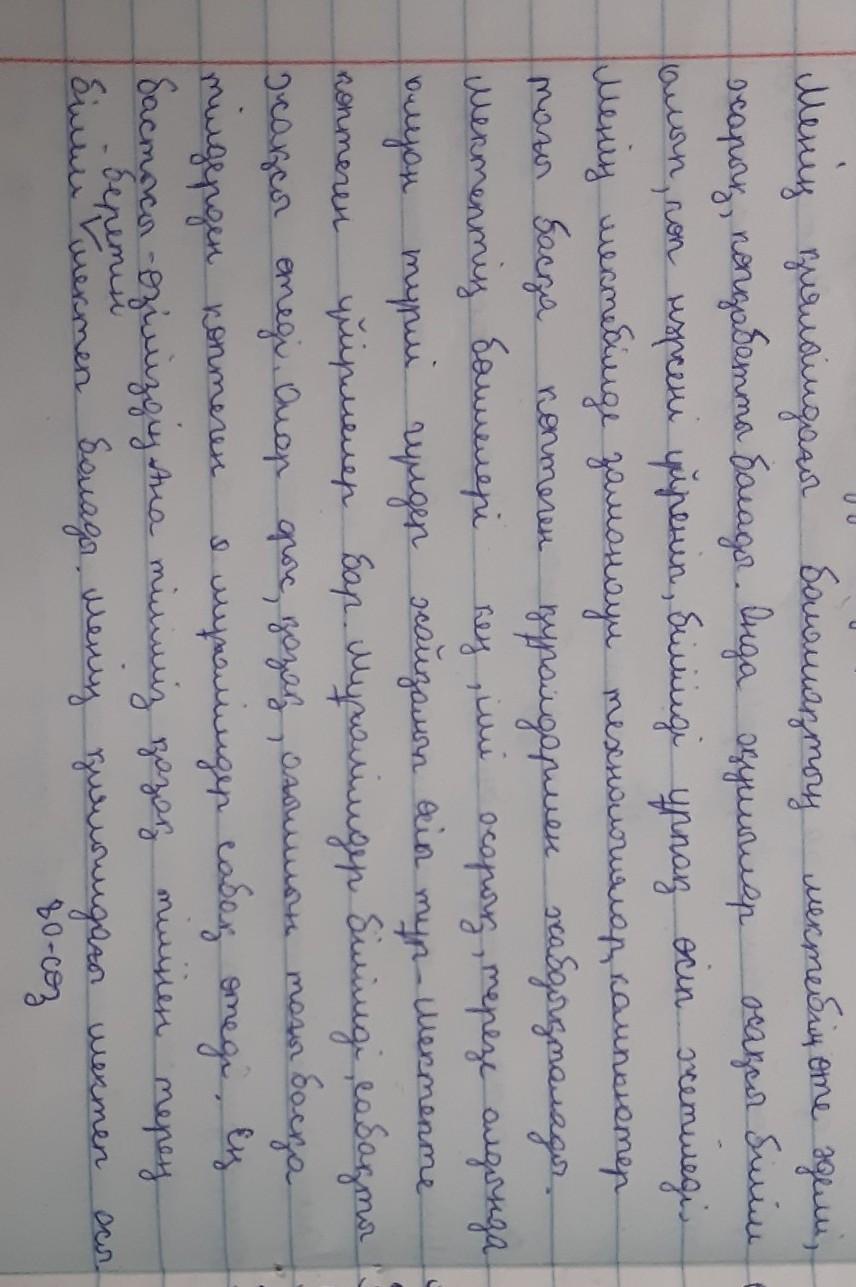 Менің қиялымдағы болашақтың мектебің өте әдемі,
жарық, көпқабатты болады. Онда оқушылар жақсы білім
алып, көп нәрсені үйреніп, білімді ұрпақ өсіп жетіледі.
Менің мектебімде заманауи технологиялар, кампьютер
тағы басқа көптеген құралдармен жабдықталады.
Мектептің бөлмелері кең, іші жарық, терезе алдында
алуан түрлі гүлдер жайқалып өсіп тұр. Мектепте
көптеген үйірмелер бар. Мұғалімдер білімді, сабақты
жақсы өтеді. Олар орыс, қазақ, ағылшын тағы басқа
тілдерден көптеген мұғалімдер сабақ өтеді. Ең
бастысы - өзіміздің Ана тіліміз қазақ тілінен терең
білім беретин мектеп болады. Менің қиялымдағы мектеп осы.
80-сөз